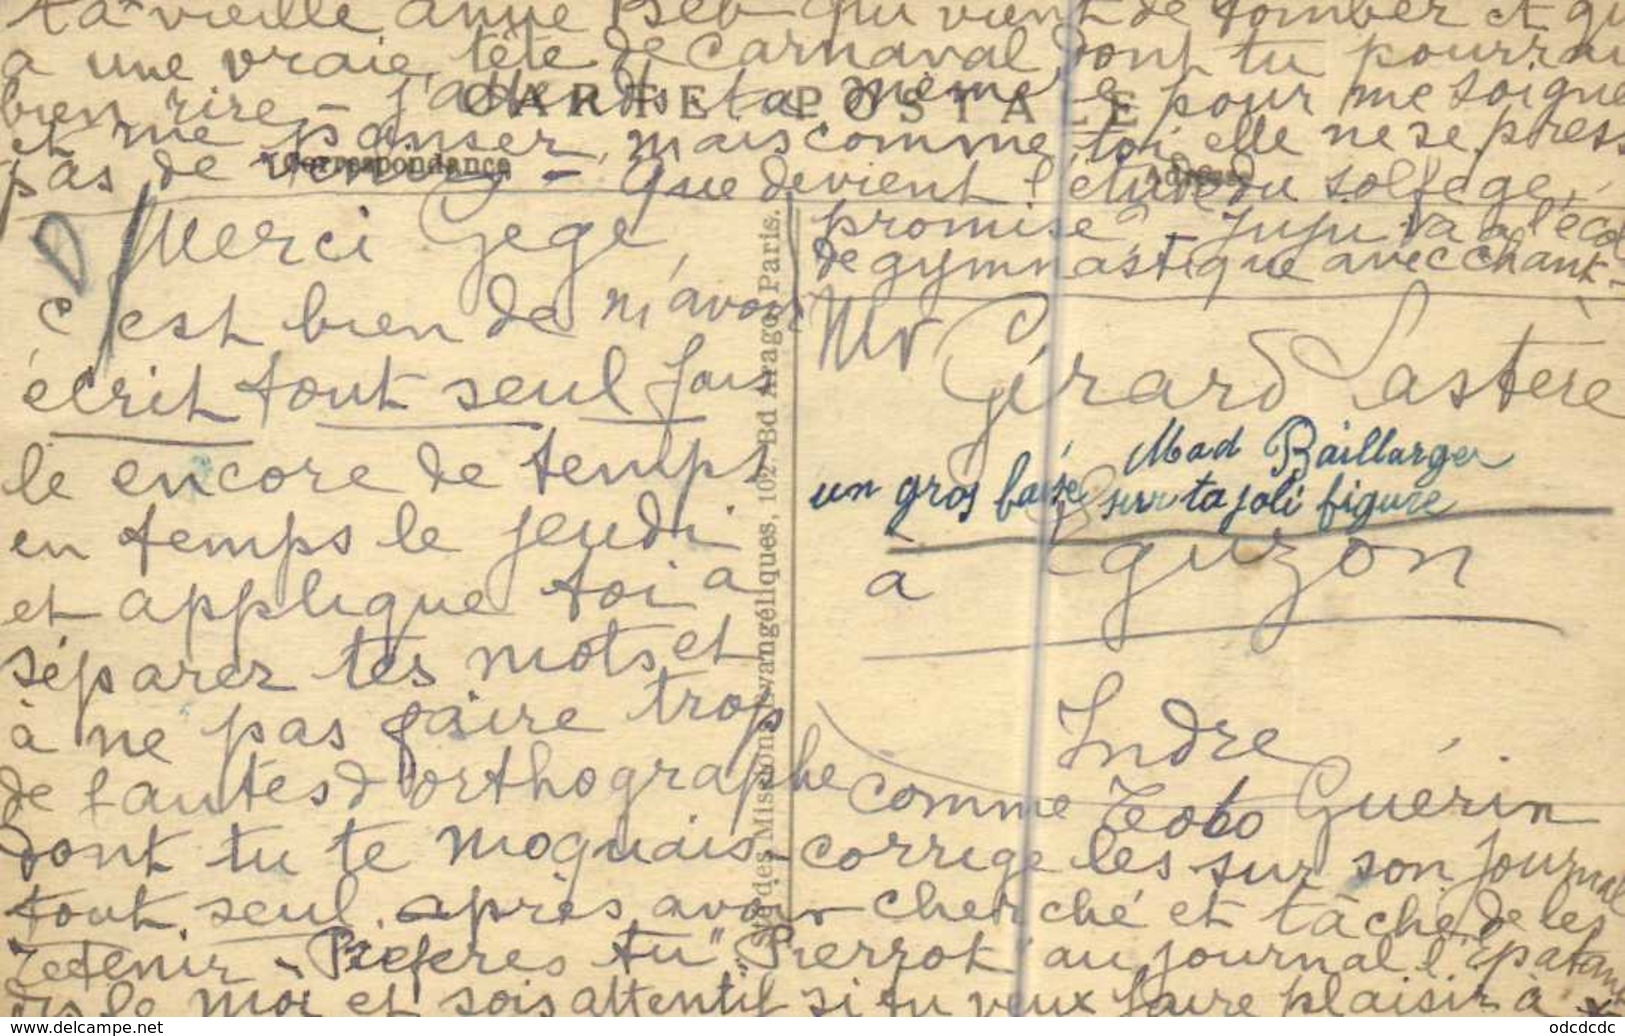 ta vieille anne Beb qui vient de tomber et qui
a une vraie tête de carnaval dont tu pourrai
bien rire - J'attends ta mémère pour me soigne
et me panser, mais comme toi elle ne se press
pas de venir - que devient l'étude du solfège
promise - Juju va à l'écol
de gymnastique avec chant -
CARTE POSTALE
Correspondance
Adresse
Merci Gégé,
c'est bien de m'avoir
écrit tout seul fais
le encore de temps
en temps le jeudi
et applique toi à
séparer tes mots et
à ne pas faire trop
de fautes d'orthographe
dont tu te moquais -
tout seul après avoir
retenir - Préfères tu "Pierrot" au journal l'Épatant
dis le moi et sois attentif si tu veux faire plaisir à
Sté des Missions Évangéliques, 102 Bd Arago, Paris.
Mr Gérard Lastère
Mad Baillarger
un gros baisé sur ta joli figure
à Eguzon
Indre
comme Toto Guérin
corrige les sur son journal
cherché et tâche de les
odcdcdc